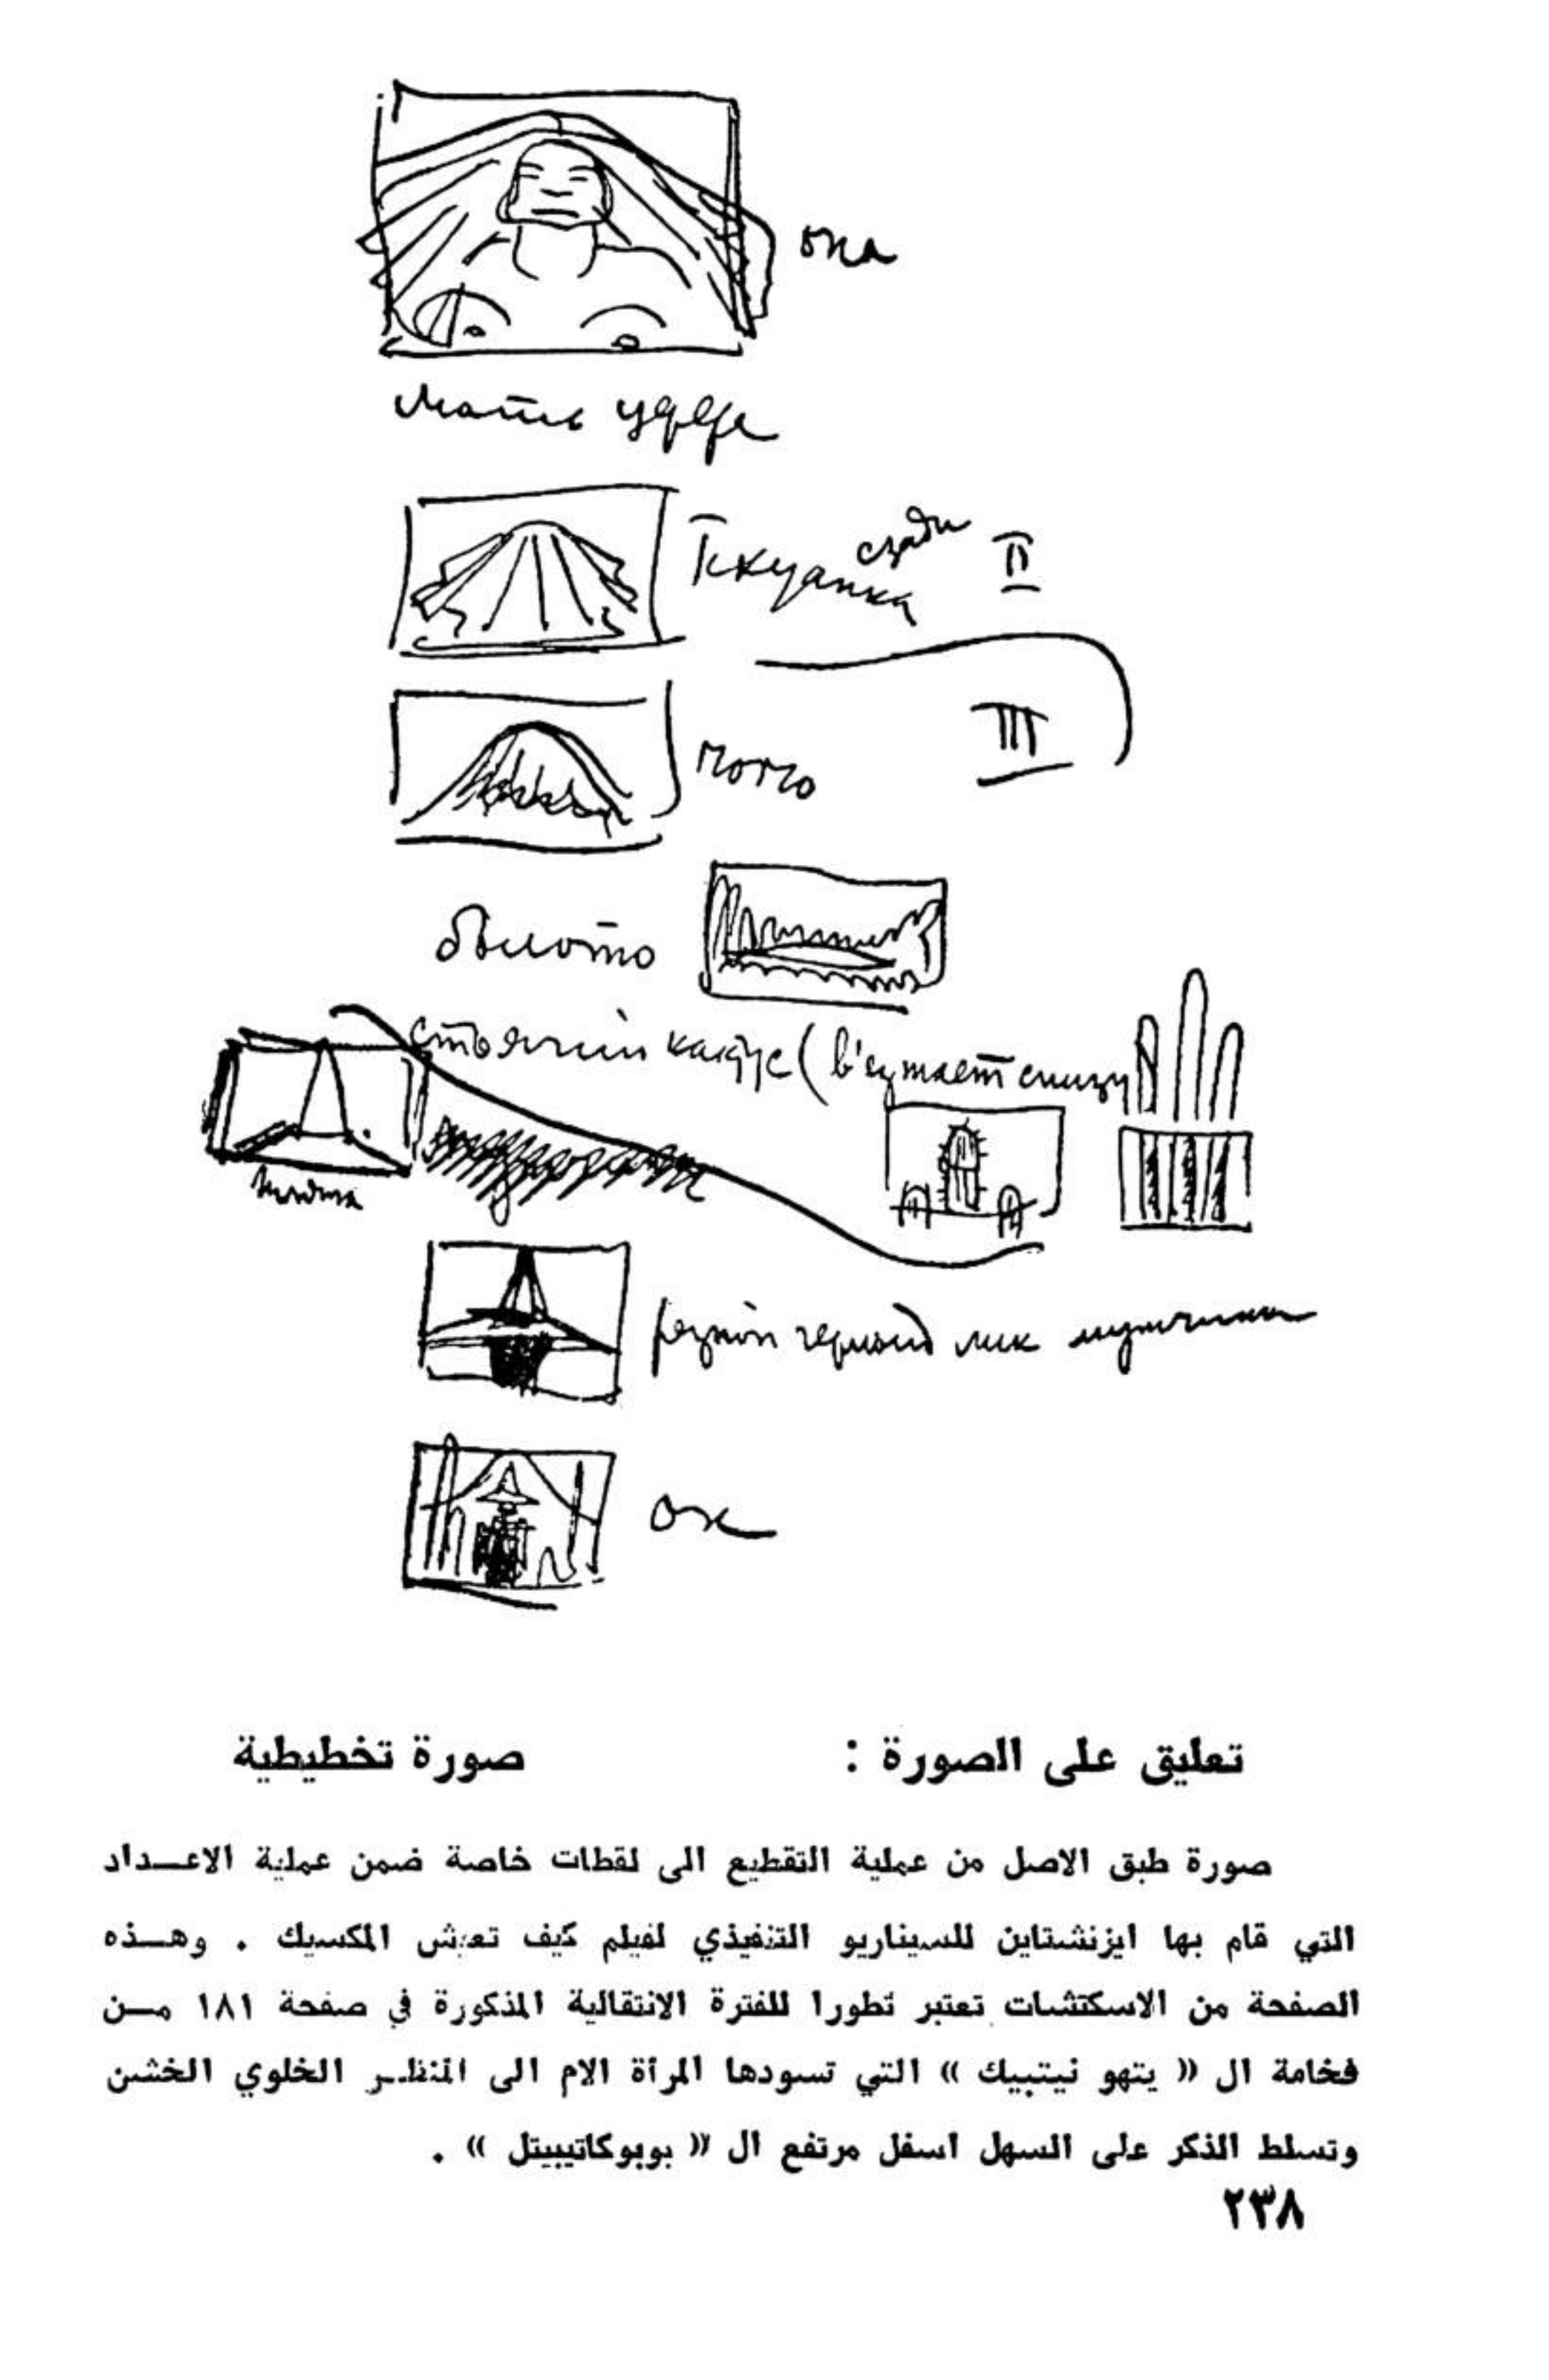 она
мать
сзади
II
III
болото
стоячий кактус (
снизу
резкий черный лик мужчины
он
تعليق على الصورة : صورة تخطيطية
صورة طبق الاصل من عملية التقطيع الى لقطات خاصة ضمن عملية الاعـــداد
التي قام بها ايزنشتاين للسيناريو التنفيذي لفيلم كيف تعيش المكسيك . وهـــذه
الصفحة من الاسكتشات تعتبر تطورا للفترة الانتقالية المذكورة في صفحة ١٨١ مــن
فخامة ال « يتهو نيتبيك » التي تسودها المرأة الام الى المنظــر الخلوي الخشن
وتسلط الذكر على السهل اسفل مرتفع ال « بوبوكاتيبيتل » .
٢٣٨